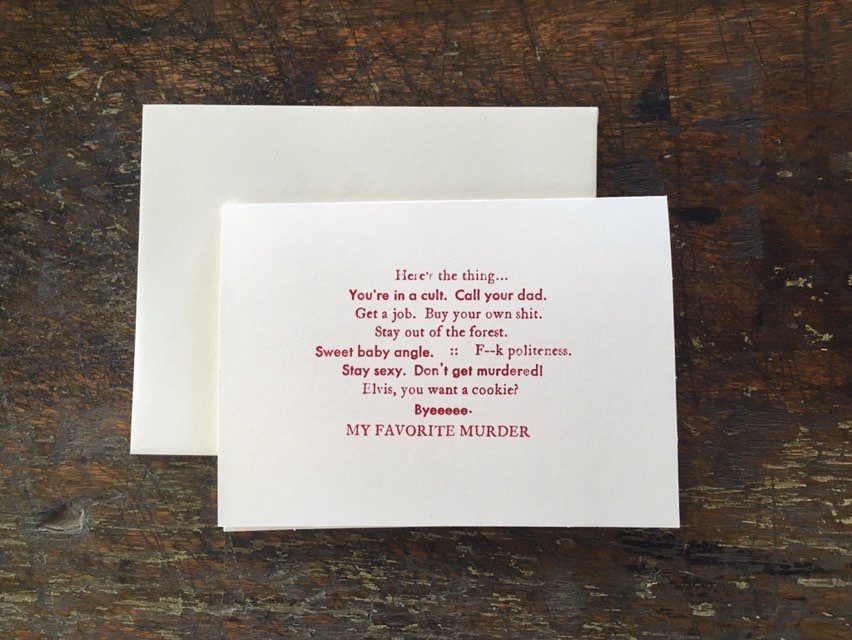 Here's the thing...
You're in a cult. Call your dad.
Get a job. Buy your own shit.
Stay out of the forest.
Sweet baby angle. :: F--k politeness.
Stay sexy. Don't get murdered!
Elvis, you want a cookie?
Byeeeee.
MY FAVORITE MURDER